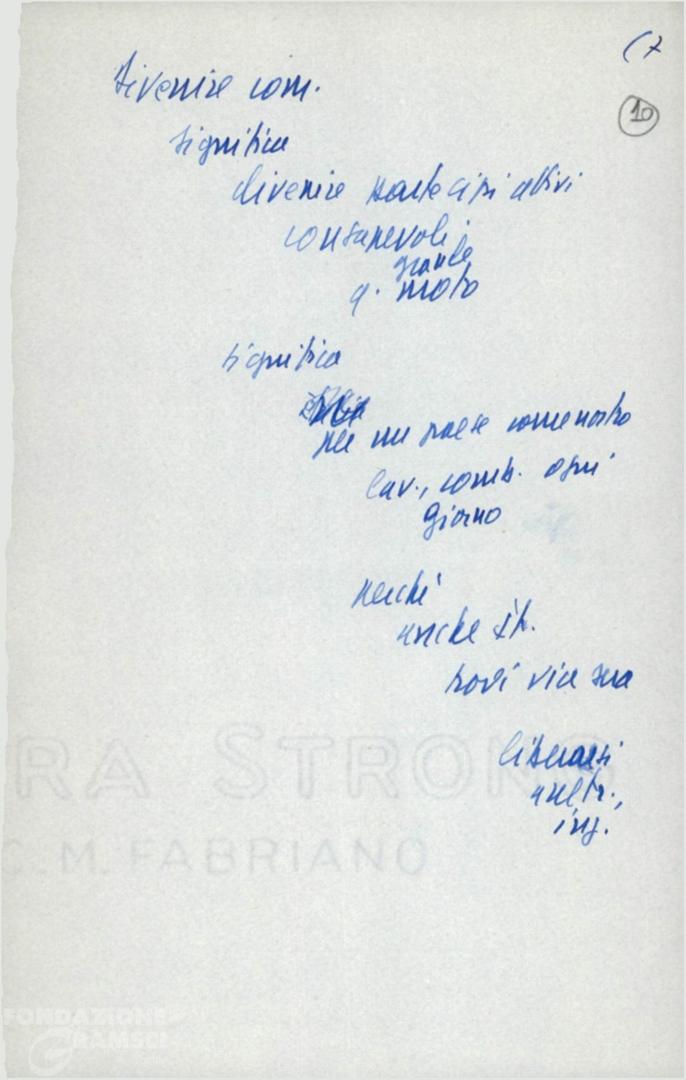 (7
10
Divenire com.
significa
divenire partecipi attivi
consapevoli
grande
q. moto
significa
per un paese come nostro
lav., comb. ogni
giorno
perché
anche It.
trovi via sua
liberarsi
sfrutt.,
ing.
RA STRONG
C.M. FABRIANO
FONDAZIONE
GRAMSCI